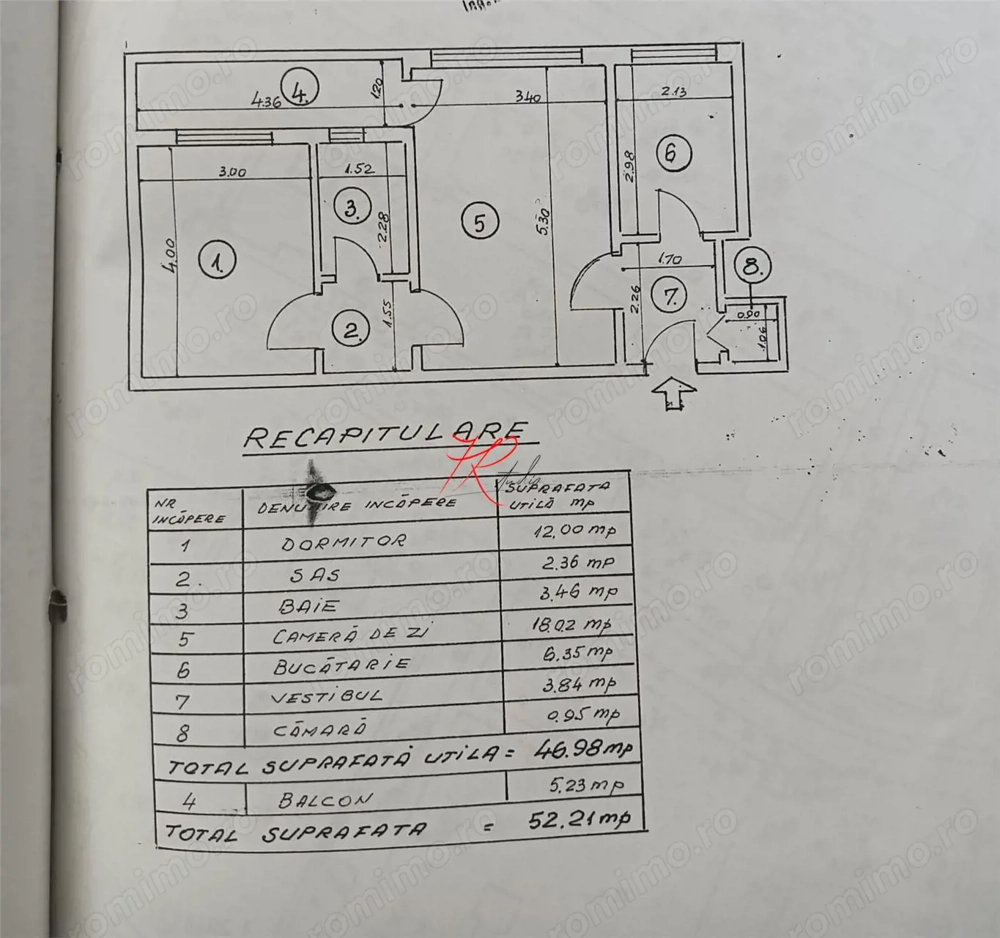 4.
4.36
1.20
3.40
2.13
3.00
1.52
2.98
6
3.
2.28
5
5.30
4.00
1.
1.70
8.
7.
2.26
2.
1.55
0.90
1.06
RECAPITULARE
NR INCĂPERE DENUMIRE INCĂPERE SUPRAFATA UTILĂ MP
1 DORMITOR 12,00 mp
2. SAS 2.36 mp
3 BAIE 3,46 mp
5 CAMERĂ DE ZI 18.02 mp
6 BUCĂTARIE 6.35 mp
7 VESTIBUL 3.84 mp
8 CĂMARĂ 0.95 mp
TOTAL SUPRAFATĂ UTILA = 46.98 mp
4 BALCON 5,23 mp
TOTAL SUPRAFATA = 52.21 mp
romimo.ro